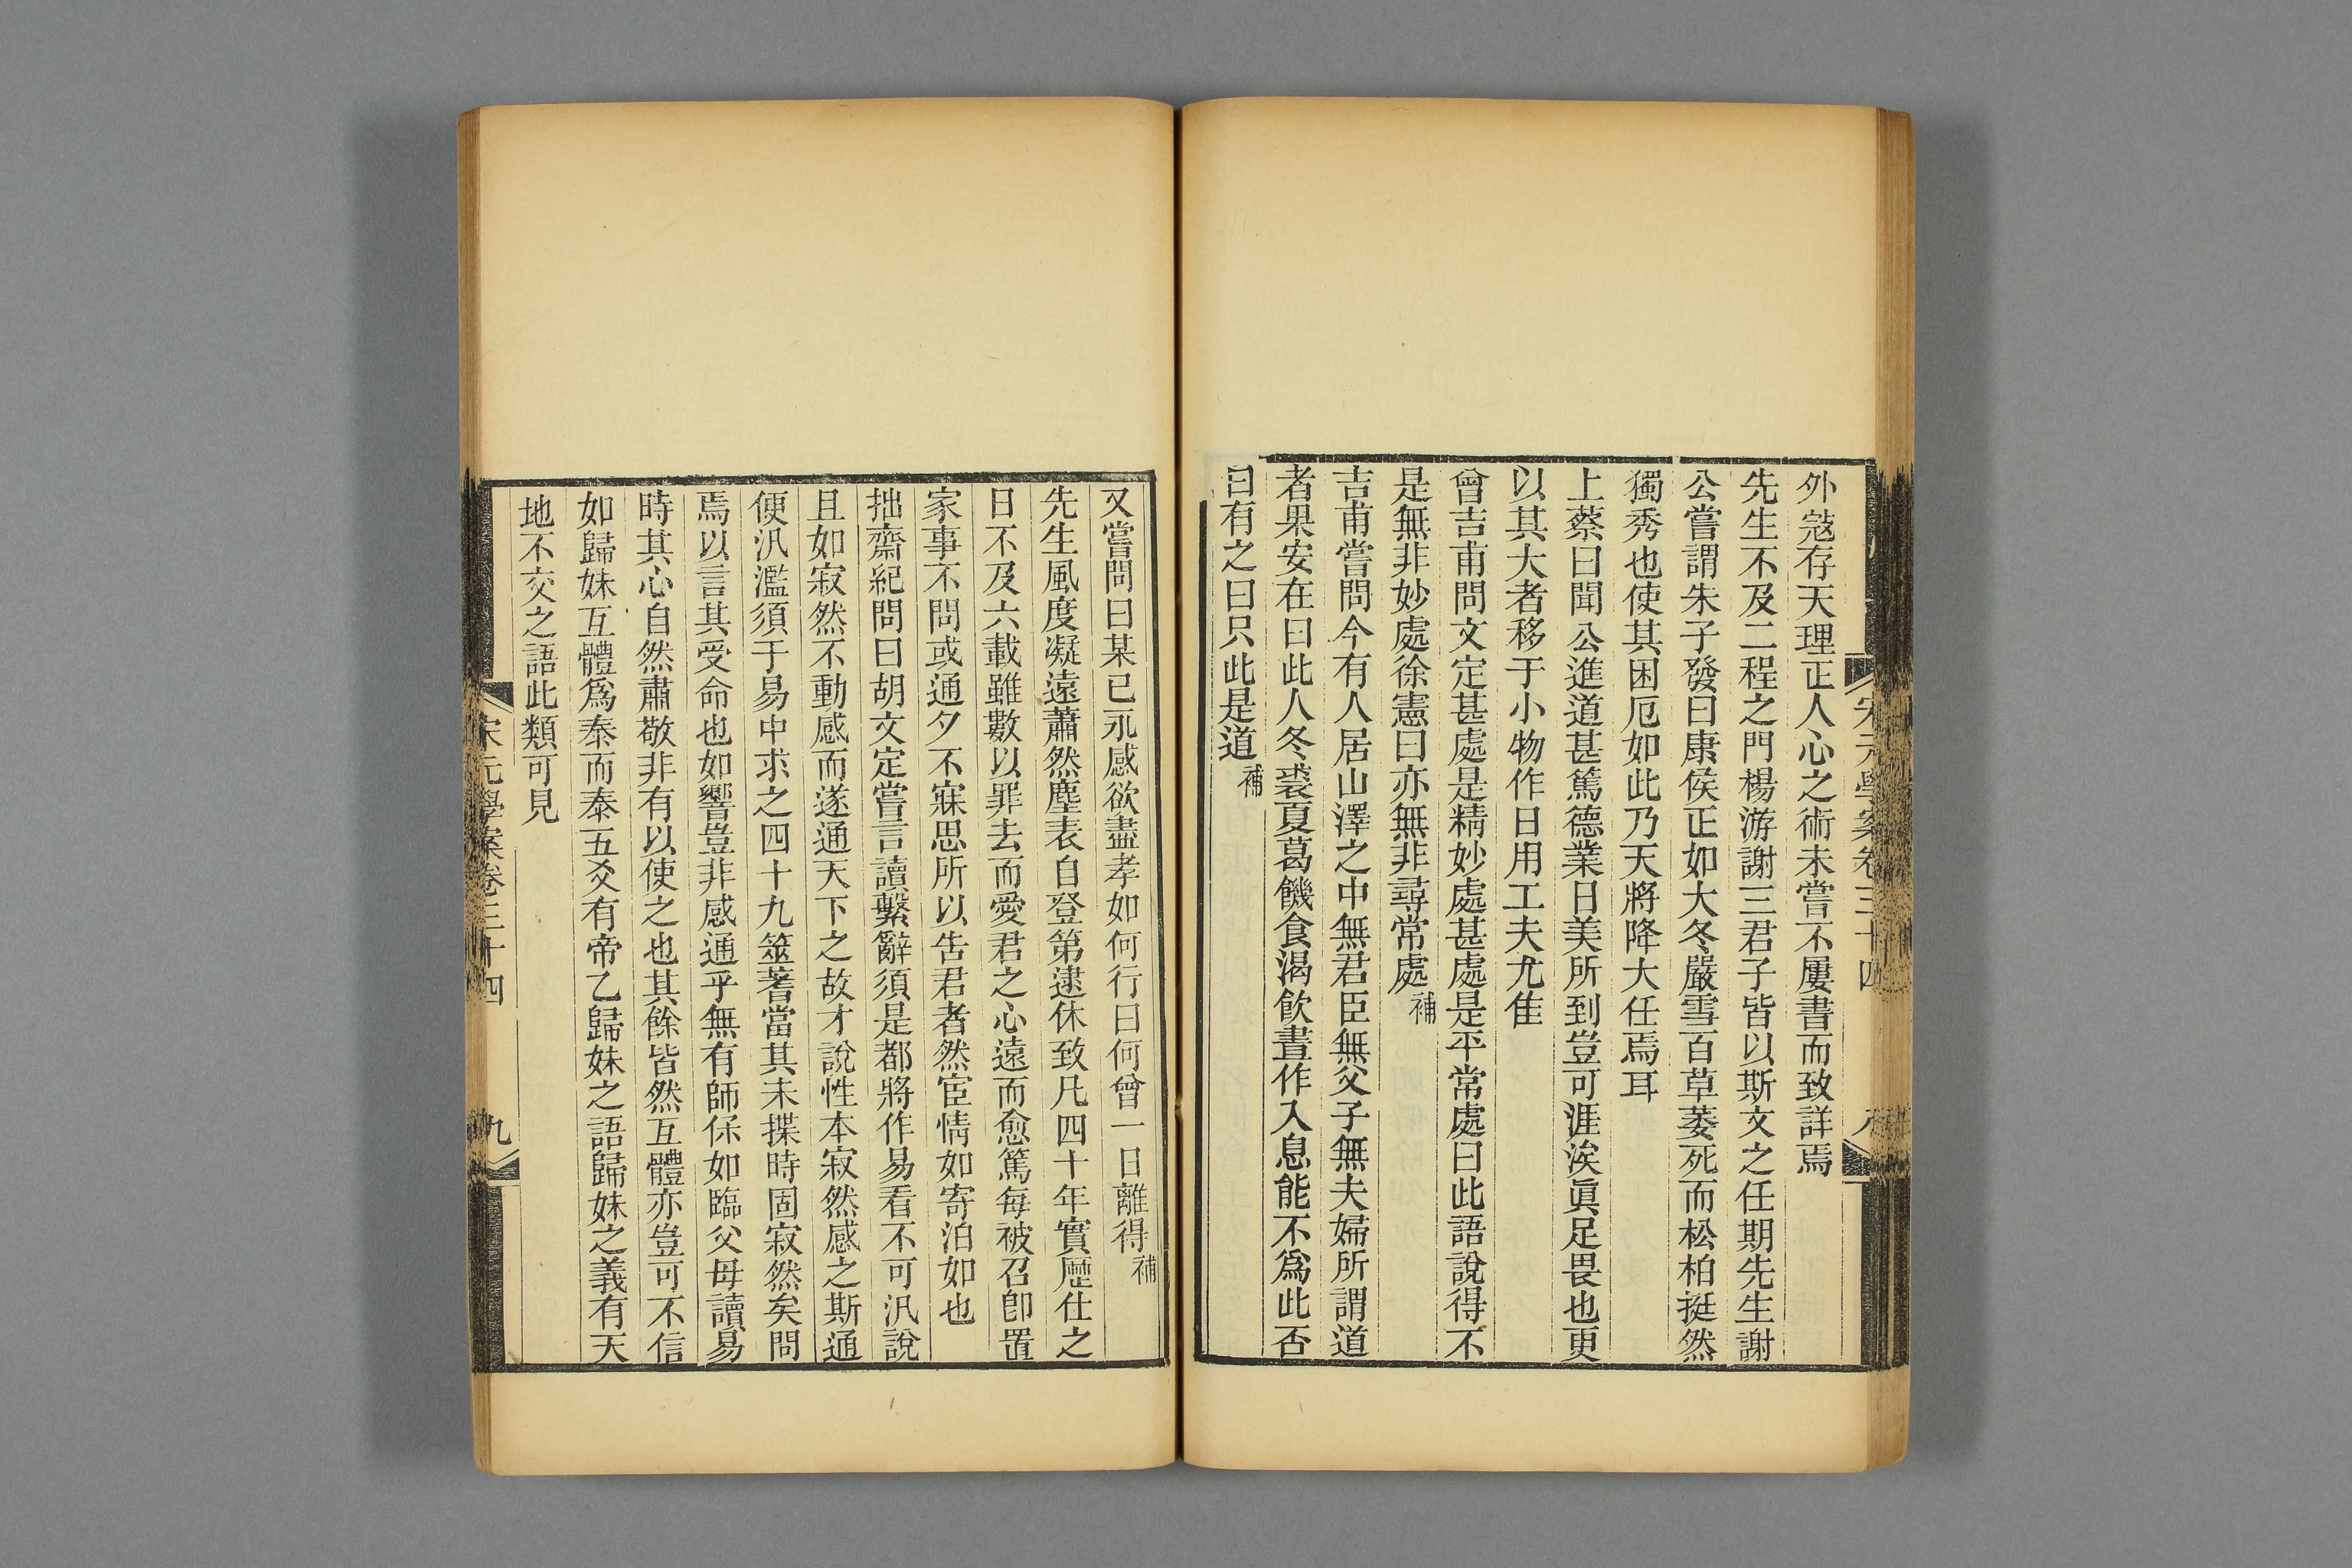 外寇存天理正人心之術未嘗不屢書而致詳焉
先生不及二程之門楊游謝三君子皆以斯文之任期先生謝
公嘗謂朱子發曰康侯正如大冬嚴雪百草萎死而松柏挺然
獨秀也使其困厄如此乃天將降大任焉耳
上蔡曰聞公進道甚篤德業日美所到豈可涯涘眞足畏也更
以其大者移于小物作日用工夫尤隹
曾吉甫問文定甚處是精妙處甚處是平常處曰此語說得不
是無非妙處徐憲曰亦無非尋常處補
吉甫嘗問今有人居山澤之中無君臣無父子無夫婦所謂道
者果安在曰此人冬裘夏葛饑食渴飲晝作入息能不爲此否
曰有之曰只此是道補
宋元學案卷三十四
八
又嘗問曰某已永感欲盡孝如何行曰何曾一日離得補
先生風度凝遠蕭然塵表自登第逮休致凡四十年實歷仕之
日不及六載雖數以罪去而愛君之心遠而愈篤每被召卽置
家事不問或通夕不寐思所以告君者然宦情如寄泊如也
拙齋紀問曰胡文定嘗言讀繫辭須是都將作易看不可汎說
且如寂然不動感而遂通天下之故才說性本寂然感之斯通
便汎濫須于易中求之四十九筮蓍當其未揲時固寂然矣問
焉以言其受命也如響豈非感通乎無有師保如臨父母讀易
時其心自然肅敬非有以使之也其餘皆然互體亦豈可不信
如歸妹互體爲泰而泰五爻有帝乙歸妹之語歸妹之義有天
地不交之語此類可見
宋元學案卷三十四
九